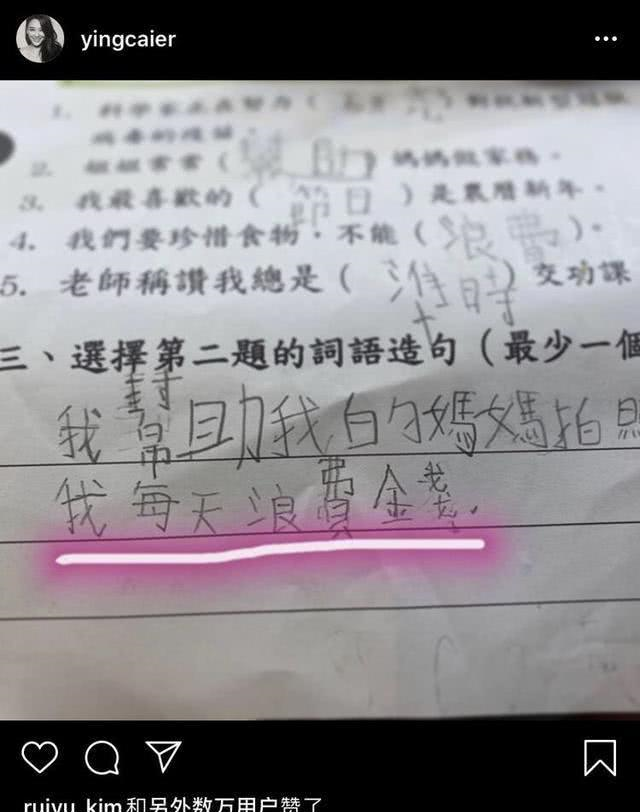 yingcaier
1. 科學家正在努力(
病毒的疫苗。
2. 姐姐常常(幫助)媽媽做家務。
3. 我最喜歡的(節日)是農曆新年。
4. 我們要珍惜食物，不能(浪費)。
5. 老師稱讚我總是(準時)交功課
三、選擇第二題的詞語造句(最少一個
我幫助我的媽媽拍照
我每天浪費金錢.
ruiyu_kim和另外数万用户赞了